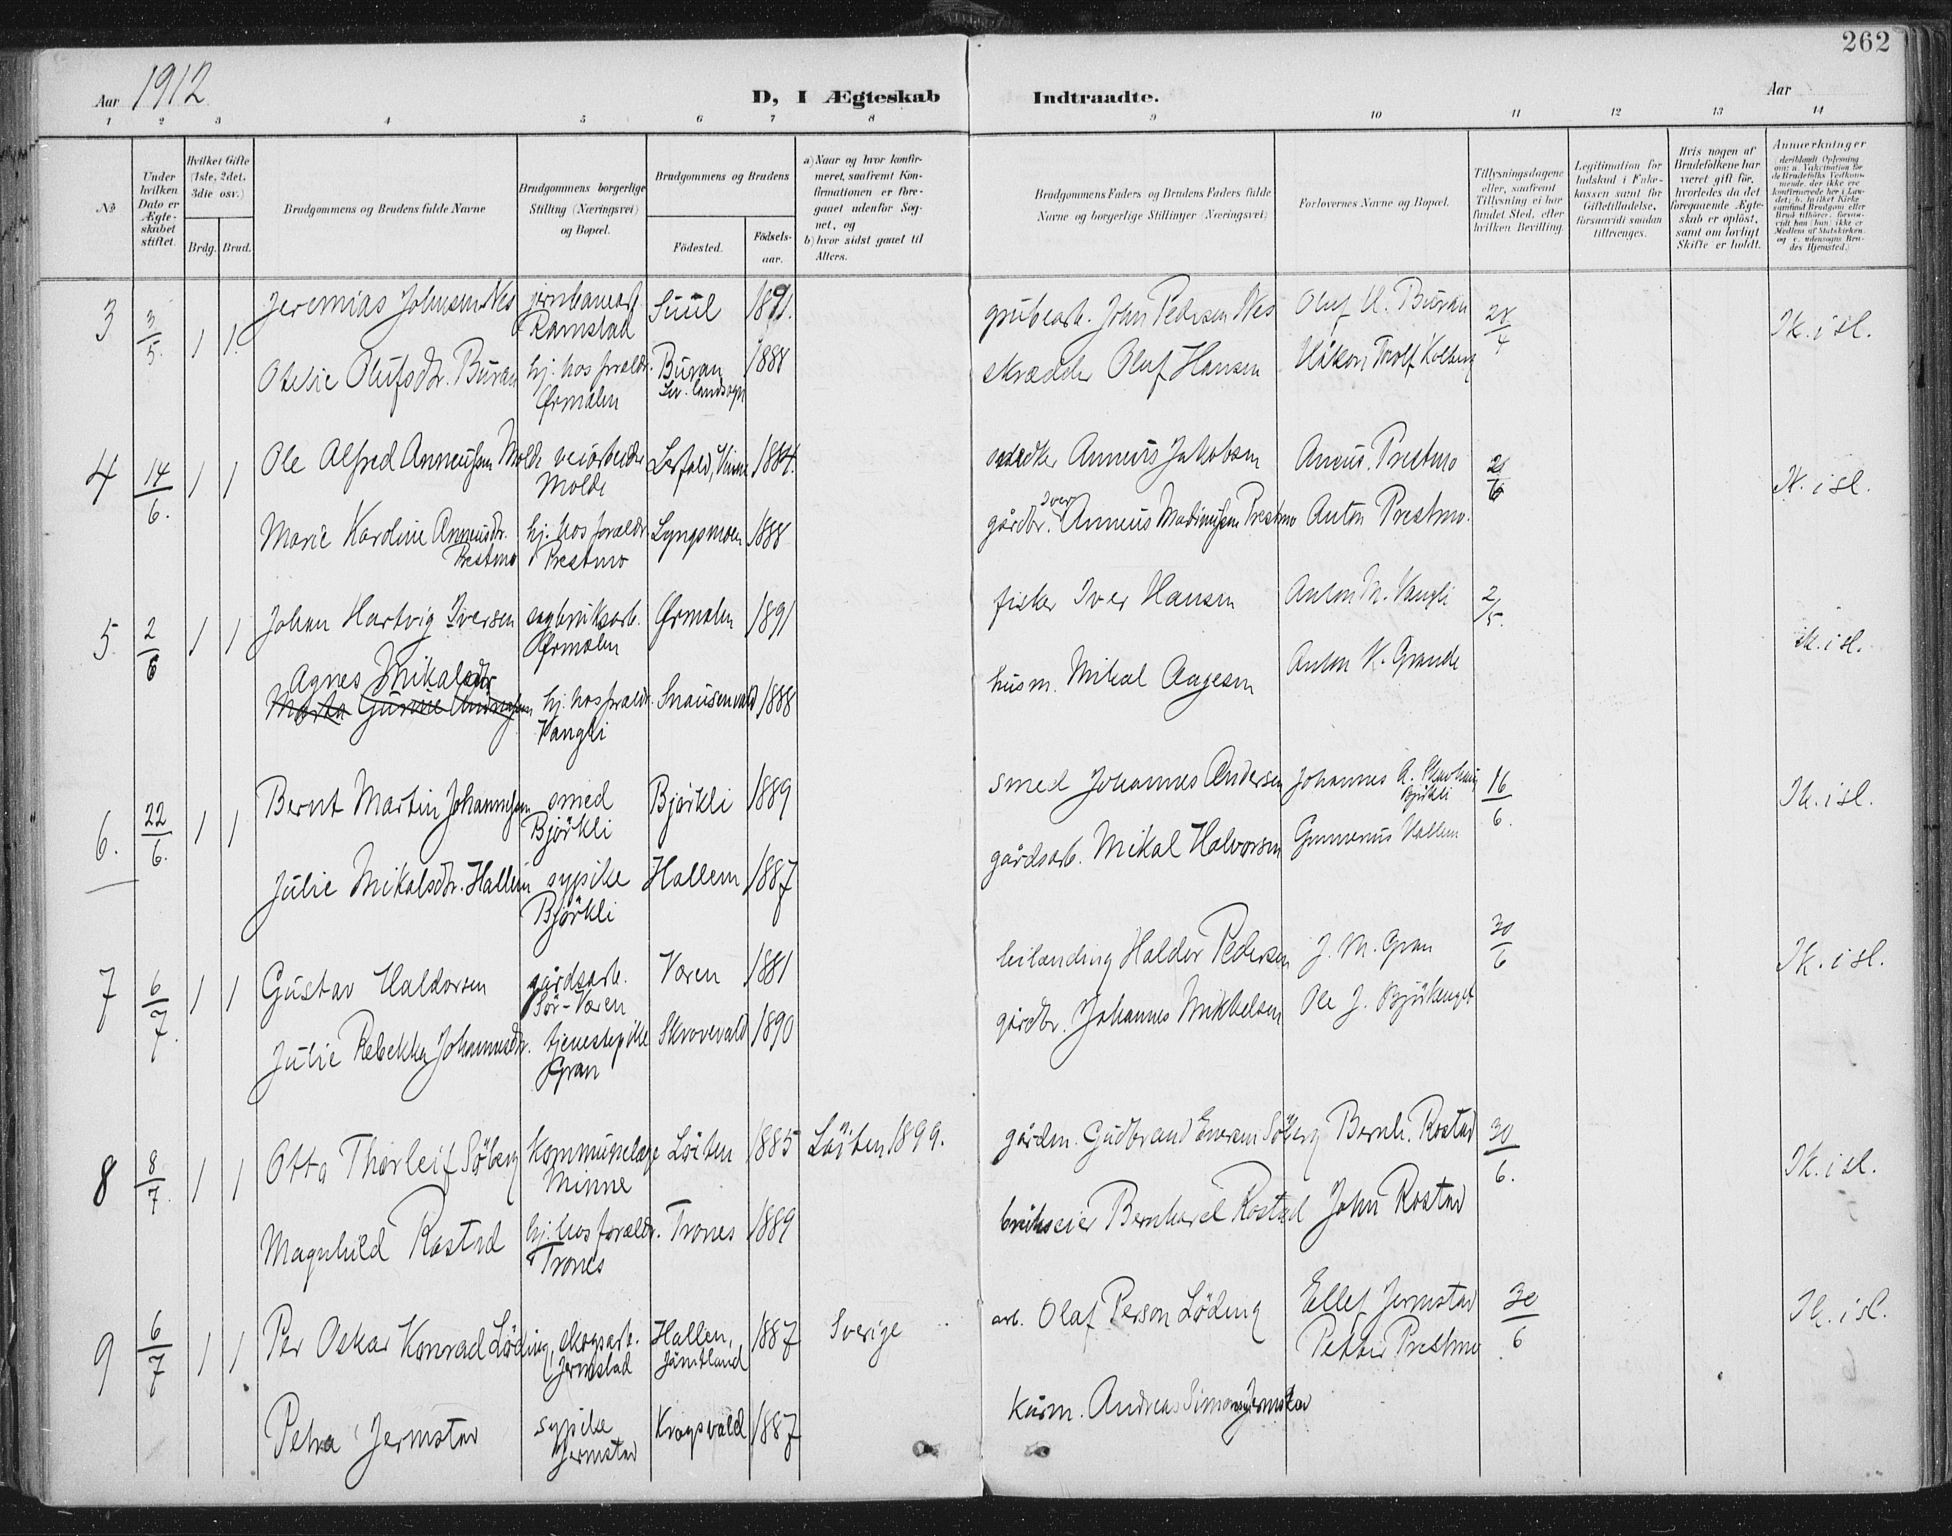 262
Aar 1912
D, I Ægteskab Indtraadte.
Aar
1 2 3 4 5 6 7 8 9 10 11 12 13 14
№
Under hvilken Dato er Ægteskabet stiftet.
Hvilket Gifte (1ste, 2det, 3die osv.)
Brdg. Brud.
Brudgommens og Brudens fulde Navne
Brudgommens borgerlige Stilling (Næringsvei) og Bopæl.
Brudgommens og Brudens
Födested. Födselsaar.
a) Naar og hvor konfirmeret, saafremt Konfirmationen er foregaaet udenfor Sognet, og
b) hvor sidst gaaet til Alters.
Brudgommens Faders og Brudens Faders fulde Navne og borgerlige Stillinger (Næringsvei)
Forlovernes Navne og Bopæl.
Tillysningsdagene eller, saafremt Tillysning ei har fundet Sted, efter hvilken Bevilling.
Legitimation for Indskud i Enkekassen samt for Giftetilladelse, forsaavidt saadan tiltrænges.
Hvis nogen af Brudefolkene har været gift før, hvorledes da det foregaaende Ægteskab er oplöst, samt om lovligt Skifte er holdt.
Anmærkninger
3 3/5. 1 1. Jeremias Johnsen Nes jernbanearb. Ramstad Suul 1891. grubearb. John Pedersen Nes Oluf H. Buran 28/4 Ik. i sl.
Otelie Olufsdtr. Buran hj. hos foreldr. Ørmelen Buran 1888 skrædder Oluf Hansen Håkon Trolf Kolberg
4 14/6. 1 1 Ole Alfred Anneussen Molde veiarbeider Molde 1884. Anneus Jakobsen Aneus. Prestmo Ik. i sl.
Marie Karoline Anneusdtr. Prestmo hj. hos foreldr. Prestmo Lyngsmoen 1888 gårdbr. Iver Anneus Prestmo Anton Prestmo.
5. 2/6 1 1 Johan Hartvig Iversen sagbruksarb. Ørmelen Ørmelen 1891 fisker Iver Hansen Anton M. Vangli 2/5. Ik. i sl.
Agnes Mikalsdtr hj. hos foreldr. Vangli Snausenvald 1888 husm. Mikal Aagesen Anton K. Grande
6. 22/6. 1 1 Bernt Martin Johannessen smed Björkli Björkli 1889 smed Johannes Andersen Johannes A. Björkli 16/6. Ik. i sl.
Julie Mikalsdtr. Hallem sypike Björkli Hallem 1887 gårdsarb. Mikal Halvorsen Gunnerius Hallem
7 6/7. 1 1 Gustav Haldorsen gårdsarb. Sör-Væren Væren 1881 leilending Haldor Pedersen J. M. Gran 30/6 Ik. i sl.
Julie Rebekka Johannesdtr. tjenestepike Gran Skrovevald 1890 gårdbr. Johannes Mikkelsen Ole J. Björkenget
8 8/7. 1 1 Otto Thorleif Söberg kommunelæge Minne Löiten 1885 Löiten 1899. gårdm. Gudbrand Eversen Söberg Bernh. Rostad 30/6. Ik. i sl.
Magnhild Rostad hj. hos foreldr. Trones Trones 1889 brukseier Bernhard Rostad John Rostad
9 6/7 1 1 Per Oskar Konrad Löding skogsarb. Jermstad Hallen, Jämtland 1887 Sverige arb. Olaf Person Löding Ellef Jermstad 30/6 Ik. i sl.
Petter Prestmo
Petra Jermstad sypike Jermstad Krogsvald 1887 husm. Andreas Simonsen Jermstad